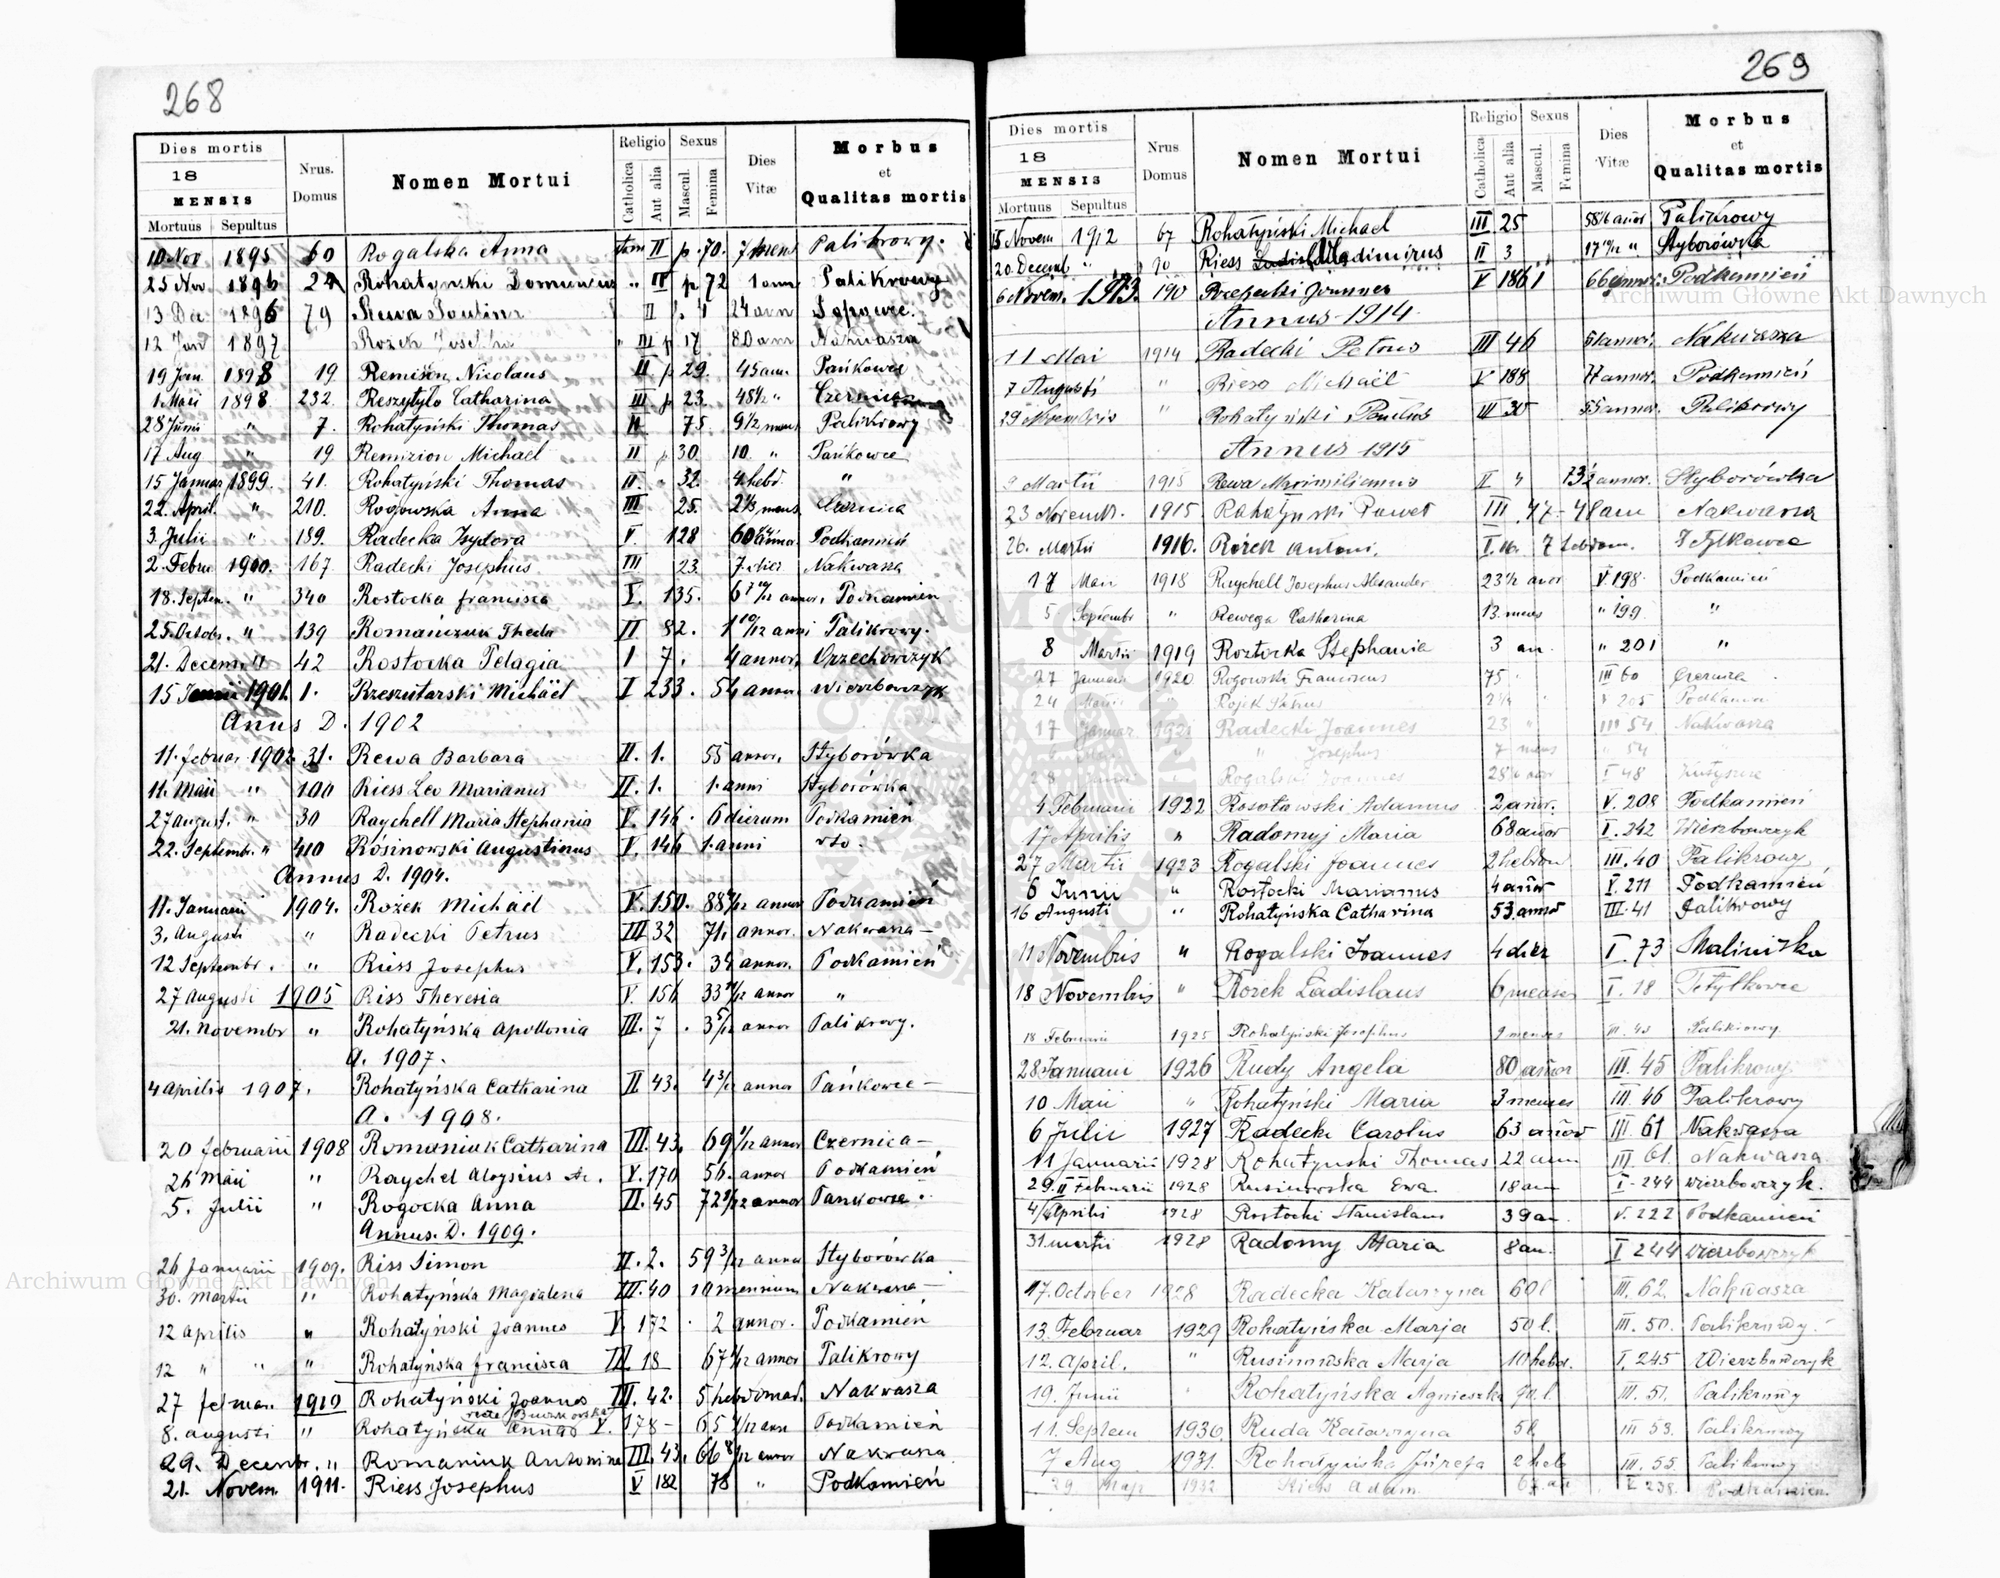 268
Dies mortis
18
MENSIS
Mortuus Sepultus
Nrus. Domus
Nomen Mortui
Religio
Catholica
Aut alia
Sexus
Mascul.
Femina
Dies Vitæ
Morbus
et
Qualitas mortis
10 Nov 1895 60 Rogalska Anna tom II p. 70. 7 mens Palikrowy.
25 Nov 1896 24 Rohatynski " IV p 72 1 ann Palikrowy
13 Dec 1896 79 Rewa Paulina II p. 1 24 ann
12 Jan 1897 Rożek III p 17 80 ann Nakwasza
19 Jan. 1898 19 Remision Nicolaus II p 29. 45 ann. Pańkowce
1 Maii 1898 232. Reszytyło Catharina III p 23. 48½ " Czernica
28 Junii " 7. Rohatyński Thomas II 75 9½ mens Palikrowy
17 Aug " 19 Remizion Michael II p 30. 10. " Pańkowce
15 Januar 1899. 41. Rohatyński Thomas II. " 32. 4 hebd. "
22. April. " 210. Rogowska Anna III 25. 2½ mens Czernica
3. Julii " 189. Radecka Isydora V. 128 60 annor Podkamień
2. Febru 1900. 167 Radecki Josephus III 23. 7. dier Nakwasza
18. Septem. " 340 Rostocka francisca V. 135. 6 7/12 annor. Podkamień
25. Octob. " 139 Romańczuk Thecla II 82. 1 10/12 anni Palikrowy.
21. Decem. " 42 Rostocka Pelagia I 7. 4 annor. Orzechowczyk
15 1901. 1. Rzeszutarski Michäel I 233. 54 annor wierzbowczyk
Annus D. 1902
11. februar 1902 31. Rewa Barbara II. 1. 55 annor. Styborówka
11. Maii " 100 Riess Leo Marianus II. 1. 1. anni Styborówka
27 august. " 30 Raychell Maria Stephania V. 146. 6 dierum Podkamień
22. Septembr. " 410 Rósinowski Augustinus V. 146 1. anni dto.
Annus D. 1904.
11. Januarii 1904. Rożek Michäel V. 150. 88 /12 annor Podkamień
3. Augusti " Radecki Petrus III 32 71. annor. Nakwasza—
12 Septembr. " Riess Josephus V. 153. 34 annor. Podkamień
27 augusti 1905 Riss Theresia V. 156 33 /12 annor "
21. novembr " Rohatyńska Apollonia III. 7. 3 5/12 annor Palikrowy.
A. 1907.
4 aprilis 1907. Rohatyńska Catharina II. 43. 4 3/12 annor Pańkowce—
A. 1908.
20 februarii 1908 Romaniuk Catharina III. 43. 69 1/12 annor Czernica—
26 Maii " Raychel Aloysius V. 170 56. annor Podkamień
5. Julii " Rogocka Anna II. 45 72 /12 annor Pańkowce.
Annus. D. 1909.
26 Januarii 1909. Riss Simon II. 2. 59 3/12 annor Styborówka
30. Martii " Rohatyńska Magdalena III. 40 10 mensium Nakwasza—
12 aprilis " Rohatyński Joannes V. 172. 2 annor. Podkamień
12 " " " Rohatyńska francisca III. 18 67 /12 annor Palikrowy
27 februar. 1910 Rohatyński Joannes III. 42. 5 hebdomad. Nakwasza
8. augusti " Rohatyńska Anna V. 178— 65 /12 ann Podkamień
29. Decembr. " Romaniuk Antonina III. 43. 66 8/12 annor Nakwasza
21. Novem. 1911. Riess Josephus V 182 78 " Podkamień
269
Dies mortis
18
MENSIS
Mortuus Sepultus
Nrus Domus
Nomen Mortui
Religio
Catholica
Aut alia
Sexus
Mascul.
Femina
Dies Vitæ
Morbus
et
Qualitas mortis
15 Novem 1912 67 Rohatyński Michael III 25 58 annor Palikrowy
20. Decemb " 90 Riess Vladimirus II 3 17 " Styborówka
6 Novem. 1913. 190 Joannes V 186 1 66 annor. Podkamień
Annus 1914.
11 Mai 1914 Radecki Petrus III 46 51 annor. Nakwasza
7 Augusti " Riess Michaël V 188 77 annor. Podkamień
29 Novembris " Rohatyński Paulus III 30 55 annor. Palikrowy
Annus 1915
9 Martii 1915 Rewa Maximilianus II 4 73½ annor. Styborówka
23 Novemb. 1915 Rohatynski Paweł III. 47- 48 ann Nakwasza
26. Martii 1916. Rożek Antoni. I. 16. 7 hebdom. Z Tetylkowce
17 Maii 1918 Raychell Josephus Alexander 23½ anor V 198. Podkamień
5 Septembr " Rewega Catharina 13. mens " 199 "
8 Martii 1919 Roztocka Stephania 3 an. " 201 "
27 Januar 1920 Rogowski Franciscus 75 " III 60 Czernica
24 Martii " Rojek " 205 Podkamień
17 Januar. 1921 Radecki Joannes 23 " III 54 Nakwasza
" " Josephus 7 mens " 54 "
28 " Rogalski Joannes I 48
4 Februarii 1922 Rosołowski Adamus 2 anor. V. 208 Podkamień
17 Aprilis " Radomyj Maria 68 anor I. 242 Wierzbowczyk
27 Martii 1923 Rogalski Joannes 2 hebdom III. 40 Palikrowy
6 Junii " Rostocki Marianus 4 anor V. 211 Podkamień
16 Augusti " Rohatyńska Catharina 53. annor III. 41 Palikrowy
11 Novembris " Rogalski Joannes 4 dier I 73 Maliniska
18 Novembris " Rożek Ladislaus 6 menses I. 18 Tetylkowce
18 Februarii 1925 Rohatyński Josephus 9 menses III. 43 Palikrowy.
28 Januarii 1926 Rudy Angela 80 annor III. 45 Palikrowy.
10 Maii " Rohatyński Maria 3 menses III. 46 Palikrowy
6 Julii 1927 Radecki Carolus 63 annor III. 61 Nakwasza
11 Januarii 1928 Rohatyński Thomas 22 ann III. 61. Nakwasza.
29. II Februarii 1928 Rusinowska Ewa. 18 ann I. 244 wierzbowczyk.
4/ Aprilis 1928 Rostocki Stanislaus 39 an. V. 222 Podkamień
31. martii 1928 Radomy Maria 8 an. I 244 Wierzbowczyk
17. October 1928 Radecka Katarzyna 60 l III. 62. Nakwasza
13. Februar 1929 Rohatyńska Marja 50 l. III. 50. Palikrowy.
12. April. " Rusinowska Marja 10 hebd. I. 245 Wierzbowczyk
19. Junii " Rohatyńska Agnieszka 90. l. III. 51. Palikrowy
11. Septem 1930. Ruda Katarzyna 5 l. III 53. Palikrowy
7 Aug 1931. Rohatyńska Józefa 2 heb III. 55. Palikrowy
29 Maja 1932 Riess Adam 67. an V 238. Podkamień.
Archiwum Główne Akt Dawnych
Archiwum Główne Akt Dawnych